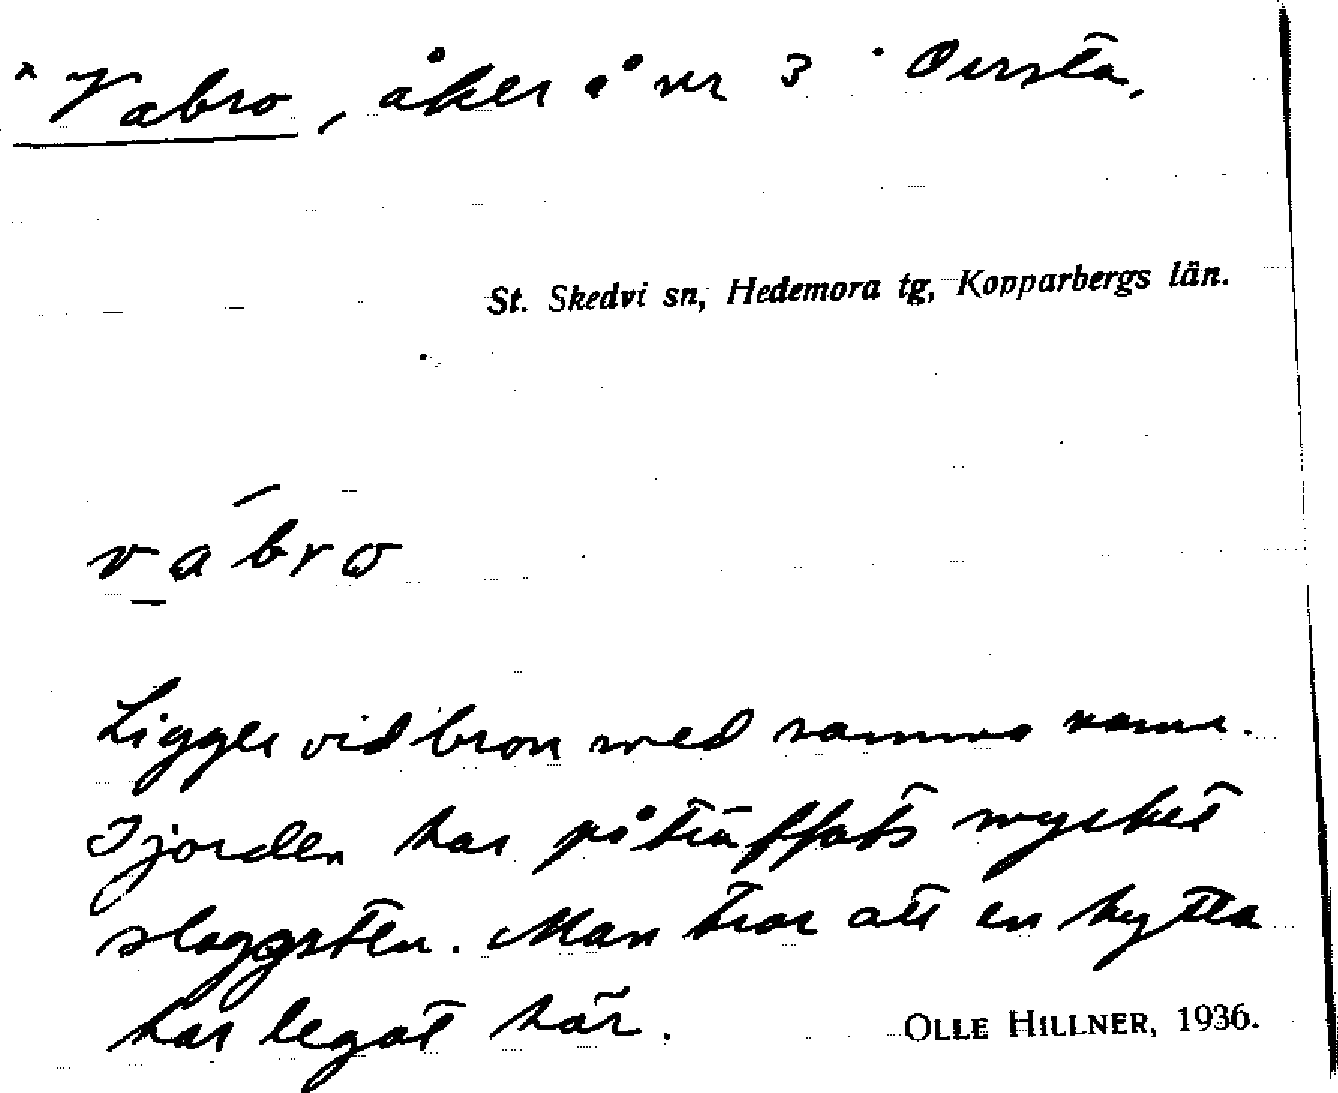 ^ Vabro, åker å nr 3 Persta,
St. Skedvi sn, Hedemora tg, Kopparbergs län.
vabro
Ligger vid bron med samma namn.
I jorden har påträffats mycket
slaggsten. Man tror att en hytta
har legat här.
OLLE HILLNER, 1936.